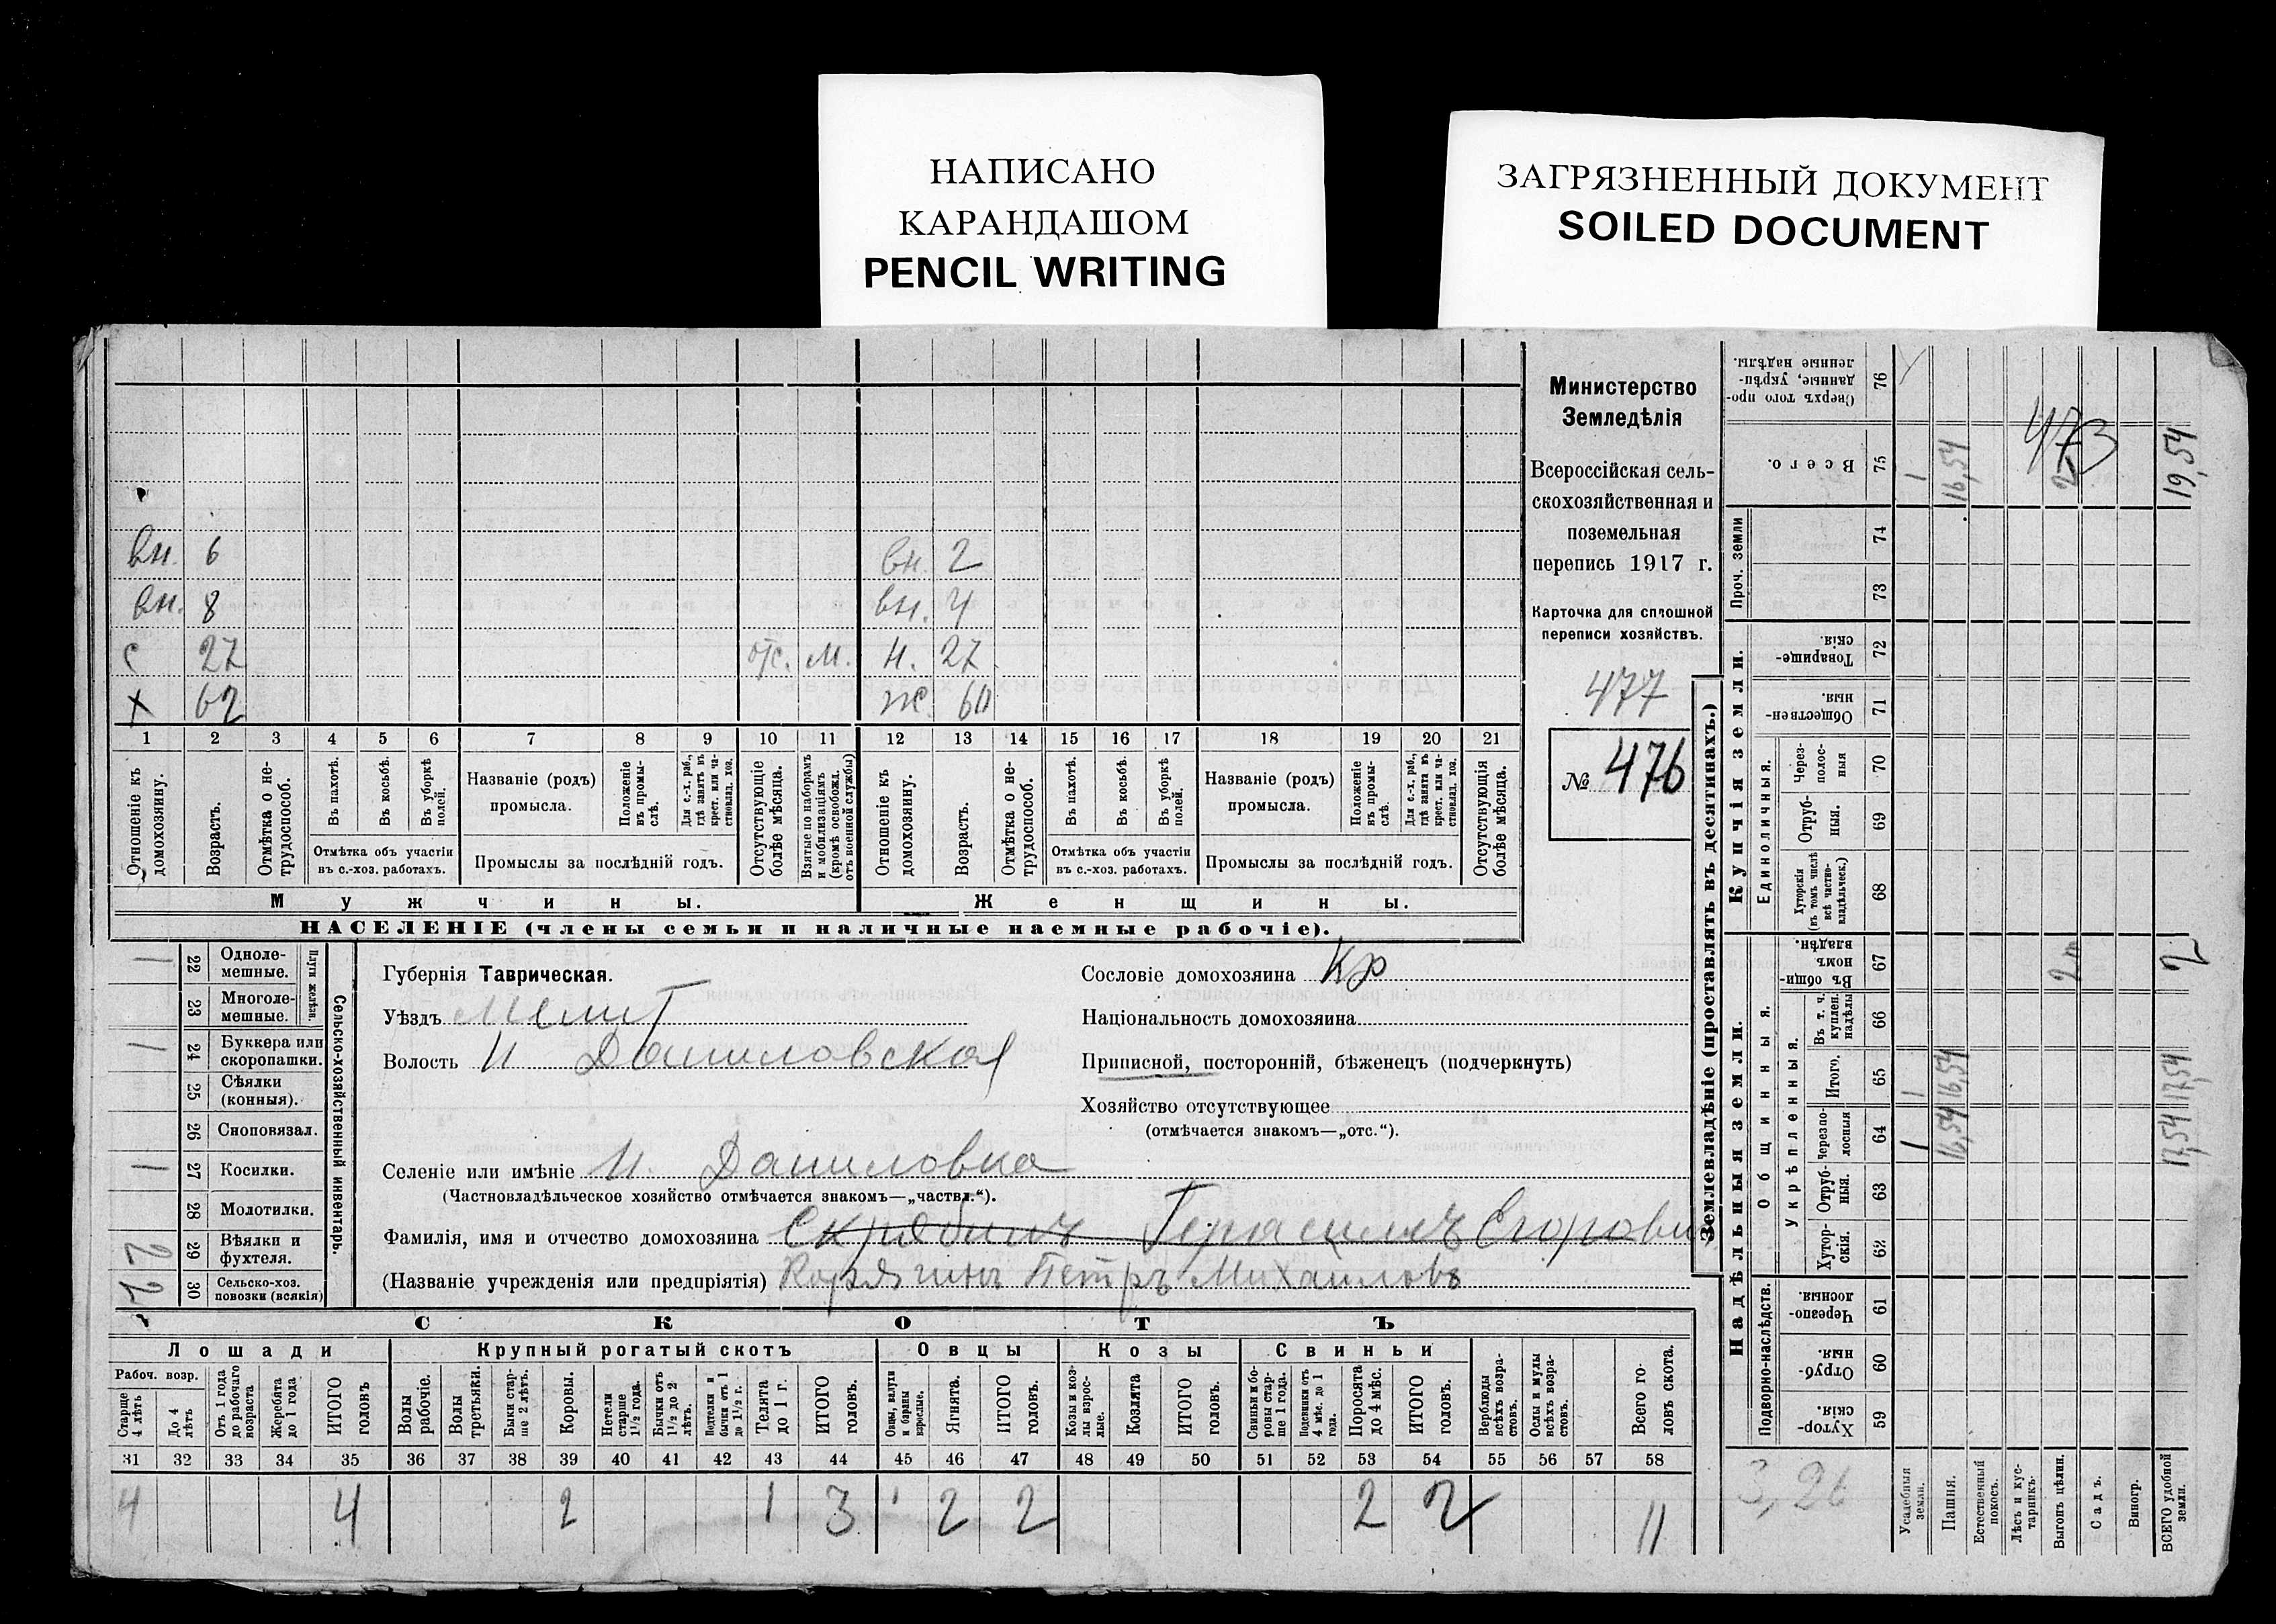 НАПИСАНО
КАРАНДАШОМ
PENCIL WRITING
ЗАГРЯЗНЕННЫЙ ДОКУМЕНТ
SOILED DOCUMENT
вн. 6 вн. 2
вн. 8 вн. 4
с 27 отс. м. н. 27
х 62 ж. 60
1 2 3 4 5 6 7 8 9 10 11 12 13 14 15 16 17 18 19 20 21
Отношеніе къ домохозяину.
Возрастъ.
Отмѣтка о не-трудоспособ.
Въ пахотѣ.
Въ косьбѣ.
Въ уборкѣ полей.
Отмѣтка объ участіи въ с.-хоз. работахъ.
Названіе (родъ) промысла.
Положеніе въ промы-слѣ.
Для с.-х. раб., гдѣ занятъ въ крест. или ча-стновлад. хоз.
Промыслы за послѣдній годъ.
Отсутствующіе болѣе мѣсяца.
Взятые по наборамъ и мобилизаціямъ (кромѣ освобожд. отъ военной службы)
Отношеніе къ домохозяину.
Возрастъ.
Отмѣтка о не-трудоспособ.
Въ пахотѣ.
Въ косьбѣ.
Въ уборкѣ полей.
Отмѣтка объ участіи въ с.-хоз. работахъ.
Названіе (родъ) промысла.
Положеніе въ промы-слѣ.
Для с.-х. раб., гдѣ занята въ крест. или ча-стновлад. хоз.
Промыслы за послѣдній годъ.
Отсутствующія болѣе мѣсяца.
Мужчины. Женщины.
НАСЕЛЕНІЕ (члены семьи и наличные наемные рабочіе).
Министерство
Земледѣлія
Всероссійская сель-
скохозяйственная и
поземельная
перепись 1917 г.
Карточка для сплошной
переписи хозяйствъ.
477
№ 476
Сельско-хозяйственный инвентарь.
Плуги желѣзн.
1 22 Одноле-мешные.
23 Многоле-мешные.
1 24 Буккера или скоропашки.
25 Сѣялки (конныя).
26 Сноповязал.
1 27 Косилки.
28 Молотилки.
2 29 Вѣялки и фухтеля.
2 30 Сельско-хоз. повозки (всякія)
Губернія Таврическая.
Уѣздъ Мелит
Волость Н Даниловская
Селеніе или имѣніе Н. Даниловка
(Частновладѣльческое хозяйство отмѣчается знакомъ—„частвл.“).
Фамилія, имя и отчество домохозяина Скрябинъ Герасимъ Егорови
(Названіе учрежденія или предпріятія) Корягинъ Петръ Михаиловъ
Сословіе домохозяина Кр
Національность домохозяина
Приписной, посторонній, бѣженецъ (подчеркнуть)
Хозяйство отсутствующее
(отмѣчается знакомъ—„отс.“).
СКОТЪ
Лошади Крупный рогатый скотъ Овцы Козы Свиньи
Рабоч. возр.
Старше 4 лѣтъ
До 4 лѣтъ
Отъ 1 года до рабочаго возраста
Жеребята до 1 года
ИТОГО головъ
Волы рабочіе.
Волы третьяки.
Быки стар-ше 2 лѣтъ.
Коровы.
Нетели старше 1½ года.
Бычки отъ 1½ до 2 лѣтъ.
Подтелки и бычки отъ 1 до 1½ г.
Телята до 1 г.
ИТОГО головъ.
Овцы, валухи и бараны взрослые.
Ягнята.
ИТОГО головъ.
Козы и коз-лы взрос-лые.
Козлята
ИТОГО головъ.
Свиньи и бо-ровы стар-ше 1 года.
Подсвинки отъ 4 мѣс. до 1 года.
Поросята до 4 мѣс.
ИТОГО головъ.
Верблюды всѣхъ возра-стовъ.
Ослы и мулы всѣхъ возра-стовъ.
Всего го-ловъ скота.
31 32 33 34 35 36 37 38 39 40 41 42 43 44 45 46 47 48 49 50 51 52 53 54 55 56 57 58
4 4 2 1 3 2 2 2 2 11
Землевладѣніе (проставлять въ десятинахъ.)
Надѣльныя земли. Купчія земли. Проч. земли
Сверхъ того про-данные, укрѣп-ленные надѣлы. 76
Всего. 75
74
73
Товарище-скія. 72
Обществен-ныя. 71
Единоличныя.
Через-полос-ныя 70
Отруб-ныя. 69
Хуторскія (въ томъ числѣ всѣ частно-владѣльческ.) 68
Общинныя.
Въ общин-номъ владѣн. 67
Укрѣпленныя.
Въ т. ч. куплен. надѣлы 66
Итого. 65
Черезпо-лосныя 64
Отруб-ныя. 63
Хутор-скія. 62
Подворно-наслѣдств.
Черезпо-лосныя. 61
Отруб-ныя. 60
Хутор-скія. 59
Усадебныя земли.
Пашня.
Естественный покосъ.
Лѣсъ и кус-тарникъ.
Выгонъ цѣлин.
Садъ.
Виногр.
ВСЕГО удобной земли.
1 16,54 2 19,54
473
2 2
1 16,54 17,54
1 16,54 17,54
3,26